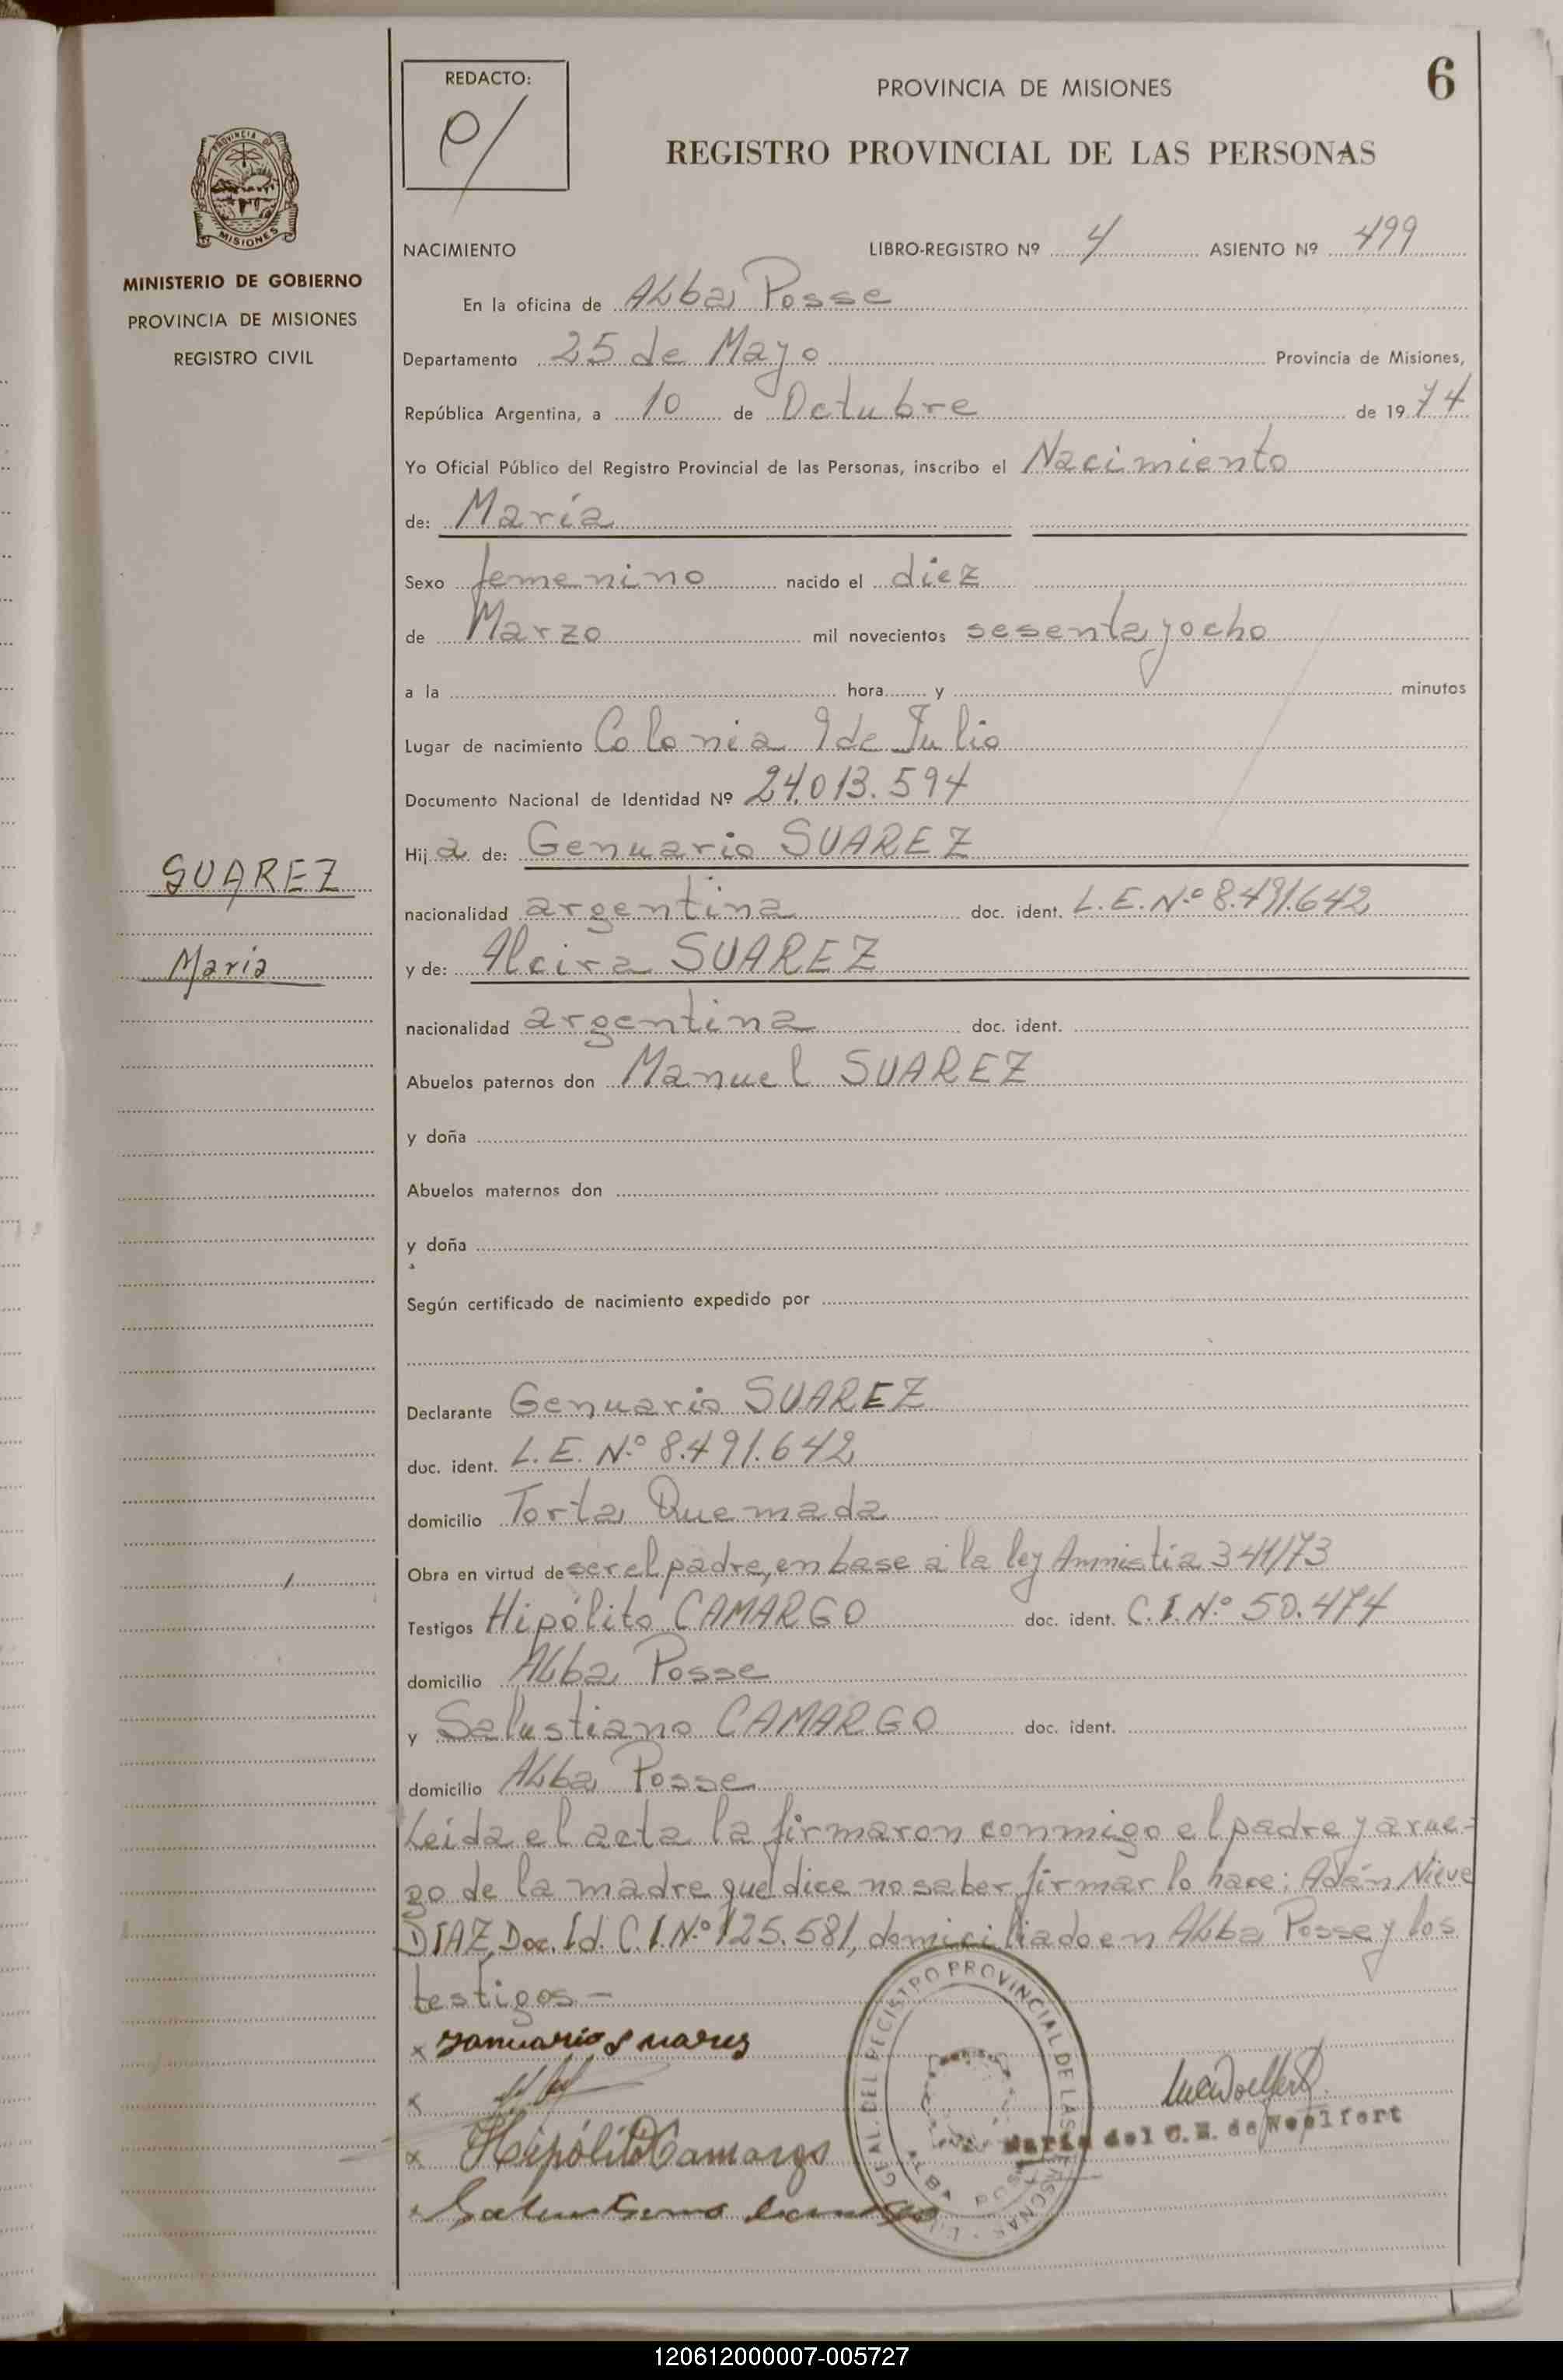 REDACTO:
PROVINCIA DE MISIONES
6
REGISTRO PROVINCIAL DE LAS PERSONAS
PROVINCIA DE
MISIONES
MINISTERIO DE GOBIERNO
PROVINCIA DE MISIONES
REGISTRO CIVIL
NACIMIENTO LIBRO-REGISTRO Nº 4 ASIENTO Nº 499
En la oficina de Alba Posse
Departamento 25 de Mayo Provincia de Misiones,
República Argentina, a 10 de Octubre de 1974
Yo Oficial Público del Registro Provincial de las Personas, inscribo el Nacimiento
de: María
Sexo femenino nacido el diez
de Marzo mil novecientos sesenta y ocho
a la hora y minutos
Lugar de nacimiento Colonia 9 de Julio
Documento Nacional de Identidad Nº 24.013.594
Hija de: Genuario SUAREZ
SUAREZ
nacionalidad argentina doc. ident. L.E.Nº 8.491.642
María
y de: Alcira SUAREZ
nacionalidad argentina doc. ident.
Abuelos paternos don Manuel SUAREZ
y doña
Abuelos maternos don
y doña
Según certificado de nacimiento expedido por
Declarante Genuario SUAREZ
doc. ident. L.E. Nº 8.491.642
domicilio Torta Quemada
Obra en virtud de ser el padre, en base a la ley Amnistia 341/73
Testigos Hipólito CAMARGO doc. ident. C.I.Nº 50.474
domicilio Alba Posse
y Salustiano CAMARGO doc. ident.
domicilio Alba Posse
Leída el acta la firmaron conmigo el padre y a rue-
go de la madre que dice no saber firmar lo hace: Adán Nieve
DIAZ, Doc. Id. C.I.Nº 125.581, domiciliado en Alba Posse y los
testigos.-
x Januario Suares
x
x Hipólito Camargo
María del C. M. de Woelfert
x Salustiano Camargo
GRAL. DEL REGISTRO PROVINCIAL DE LAS PERSONAS
ALBA POSSE
120612000007-005727